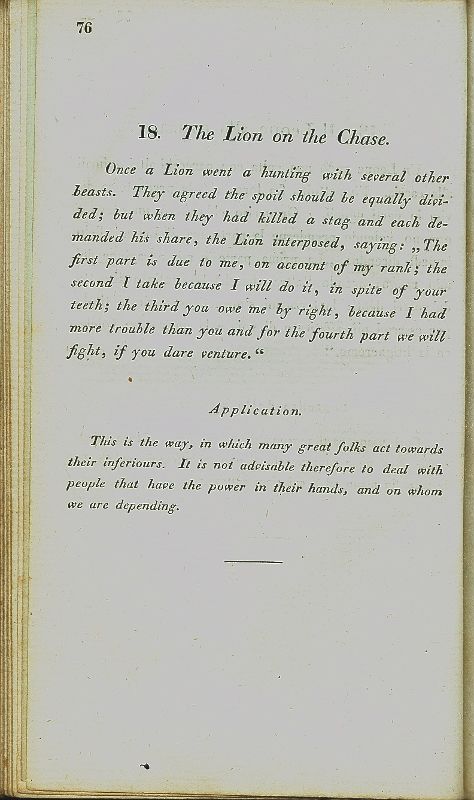 76
18. The Lion on the Chase.
Once a Lion went a hunting with several other
beasts. They agreed the spoil should be equally divi-
ded; but when they had killed a stag and each de-
manded his share, the Lion interposed, saying: „The
first part is due to me, on account of my rank; the
second I take because I will do it, in spite of your
teeth; the third you owe me by right, because I had
more trouble than you and for the fourth part we will
fight, if you dare venture.“
Application.
This is the way, in which many great folks act towards
their inferiours. It is not advisable therefore to deal with
people that have the power in their hands, and on whom
we are depending.